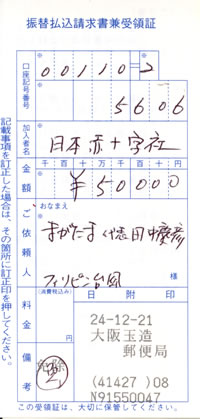 振替払込請求書兼受領証
口座記号番号
00110=2
5606
加入者名
日本赤十字社
千百十万千百十円
金額
¥50000
ご依頼人
おなまえ
フィリピン台風
様
料金
(消費税込み)
日附印
24-12-21
大阪玉造
郵便局
(41427)08
N91550047
備考
この受領証は、大切に保管してください。
記載事項を訂正した場合は、その箇所に訂正印を押してください。